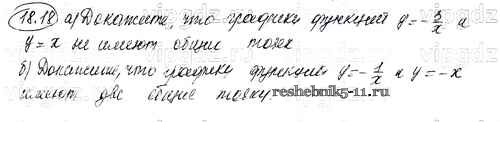 18.18 а) Докажите, что графики функций y = -5/x и
y = x не имеют общих точек
б) Докажите, что графики функций y = -1/x и y = -x
имеют две общие точки.
reshebnik5-11.ru